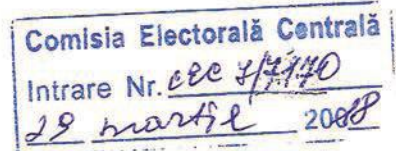 Comisia Electorală Centrală
Intrare Nr. CEC 7/7170
29 martie 2018